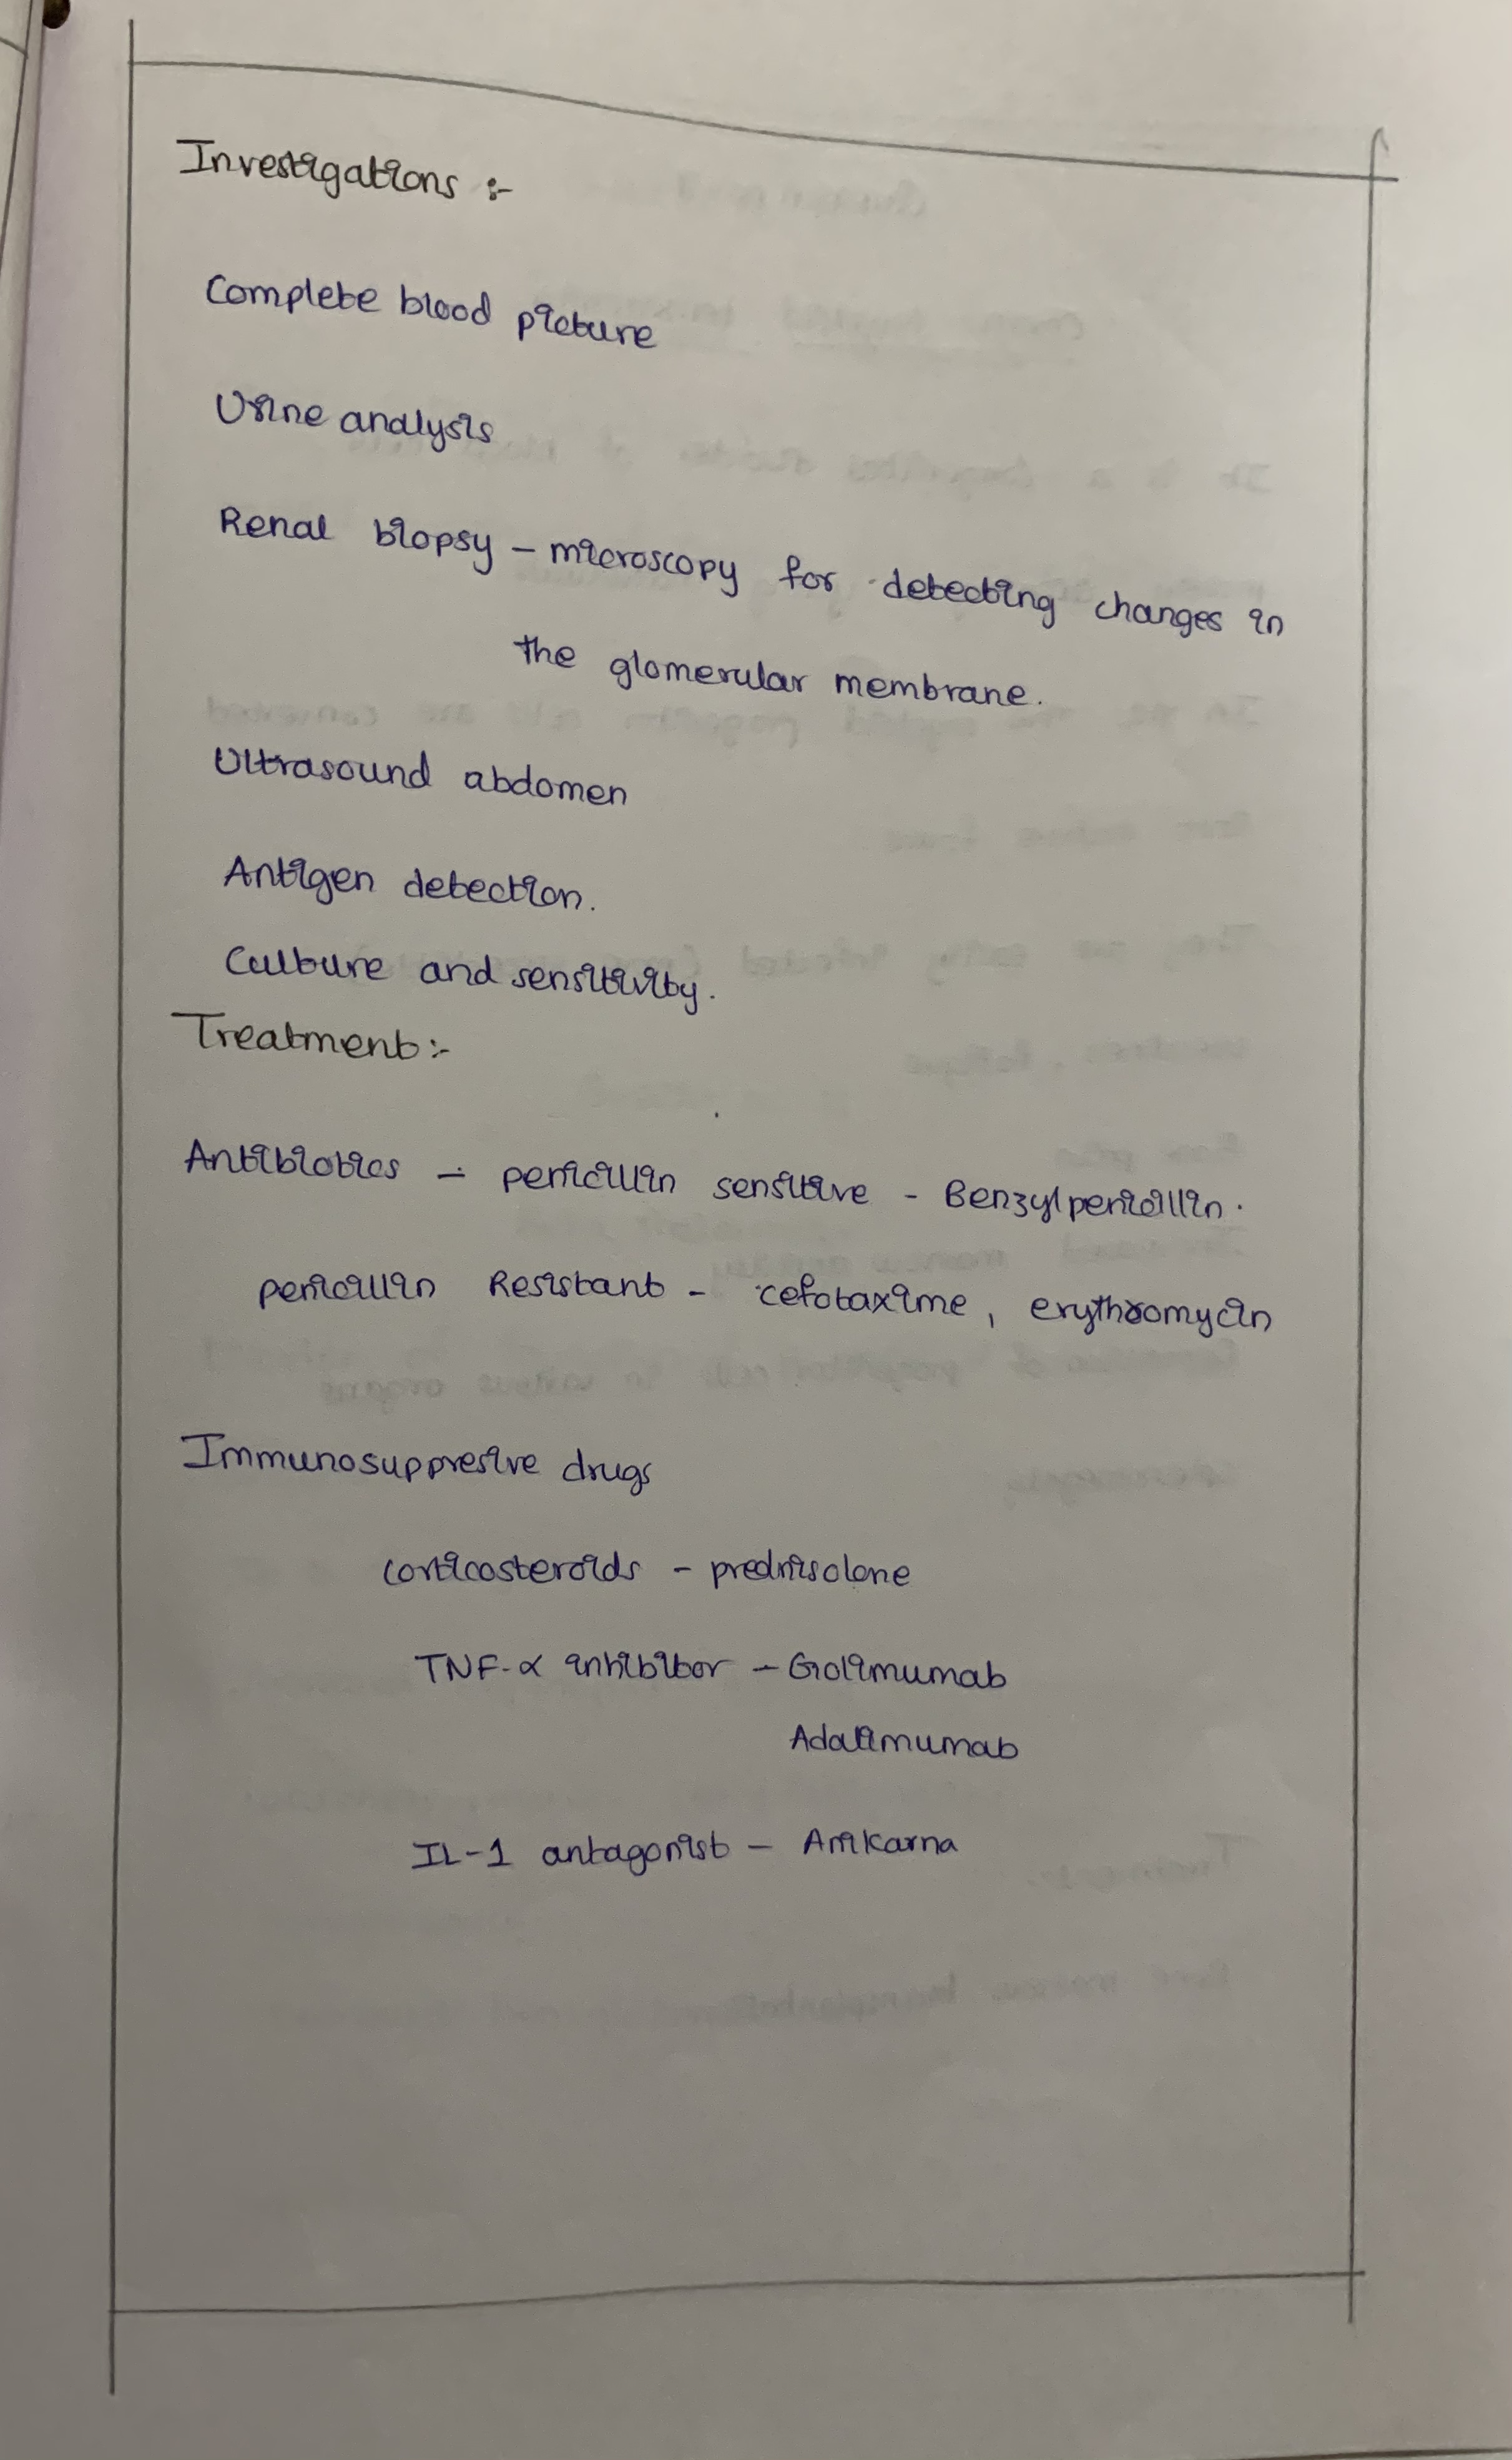 Investigations :-
Complete blood picture
Urine analysis
Renal biopsy - microscopy for detecting changes in
the glomerular membrane.
Ultrasound abdomen
Antigen detection.
Culture and sensitivity.
Treatment:-
Antibiotics - penicillin sensitive - Benzylpenicillin.
penicillin Resistant - cefotaxime, erythromycin
Immunosuppresive drugs
corticosteroids - prednisolone
TNF-α inhibitor - Golimumab
Adalimumab
IL-1 antagonist - Anikarna